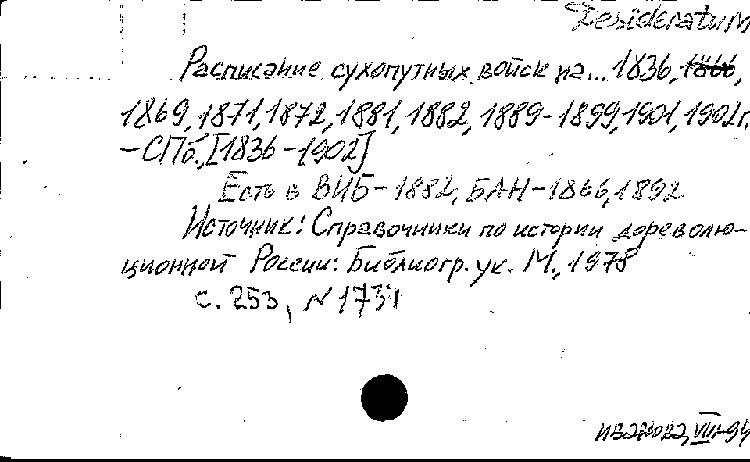 Desideratum
Расписание сухопутных войск на... 1836, 1866,
1869, 1871, 1872, 1881, 1882, 1889-1899, 1901, 1902 г.
-СПб., [1836-1902]
Есть в ВИБ-1882, БАН-1866, 1892
Источник: Справочники по истории дореволю-
ционной России: Библиогр. ук. М., 1978
с. 253, N 1731
Иванова, VIII-94